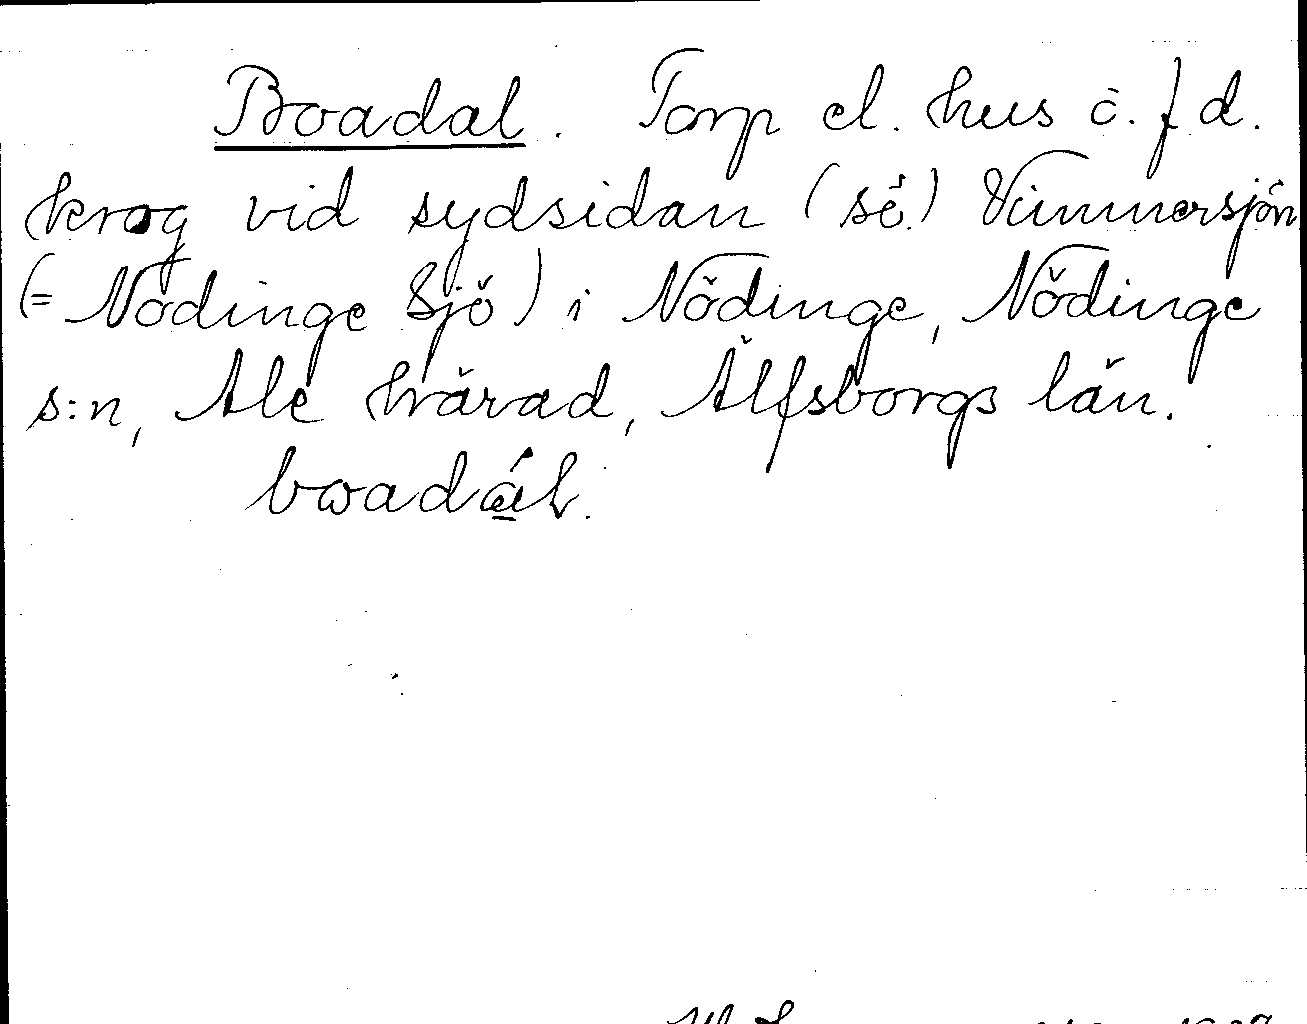 Boadal. Torp el. hus o. f d.
krog vid sydsidan (sö.) Vimmersjön
(= Nödinge Sjö) i Nödinge, Nödinge
s:n, Ale härad, Älfsborgs län.